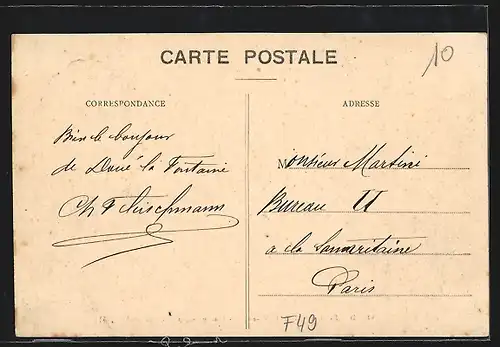 CARTE POSTALE
10
CORRESPONDANCE
Bien le bonjour
de Doué-la Fontaine
Ch Fleischmann
ADRESSE
Monsieur Martini
Bureau U
a la Samaritaine
Paris
F49